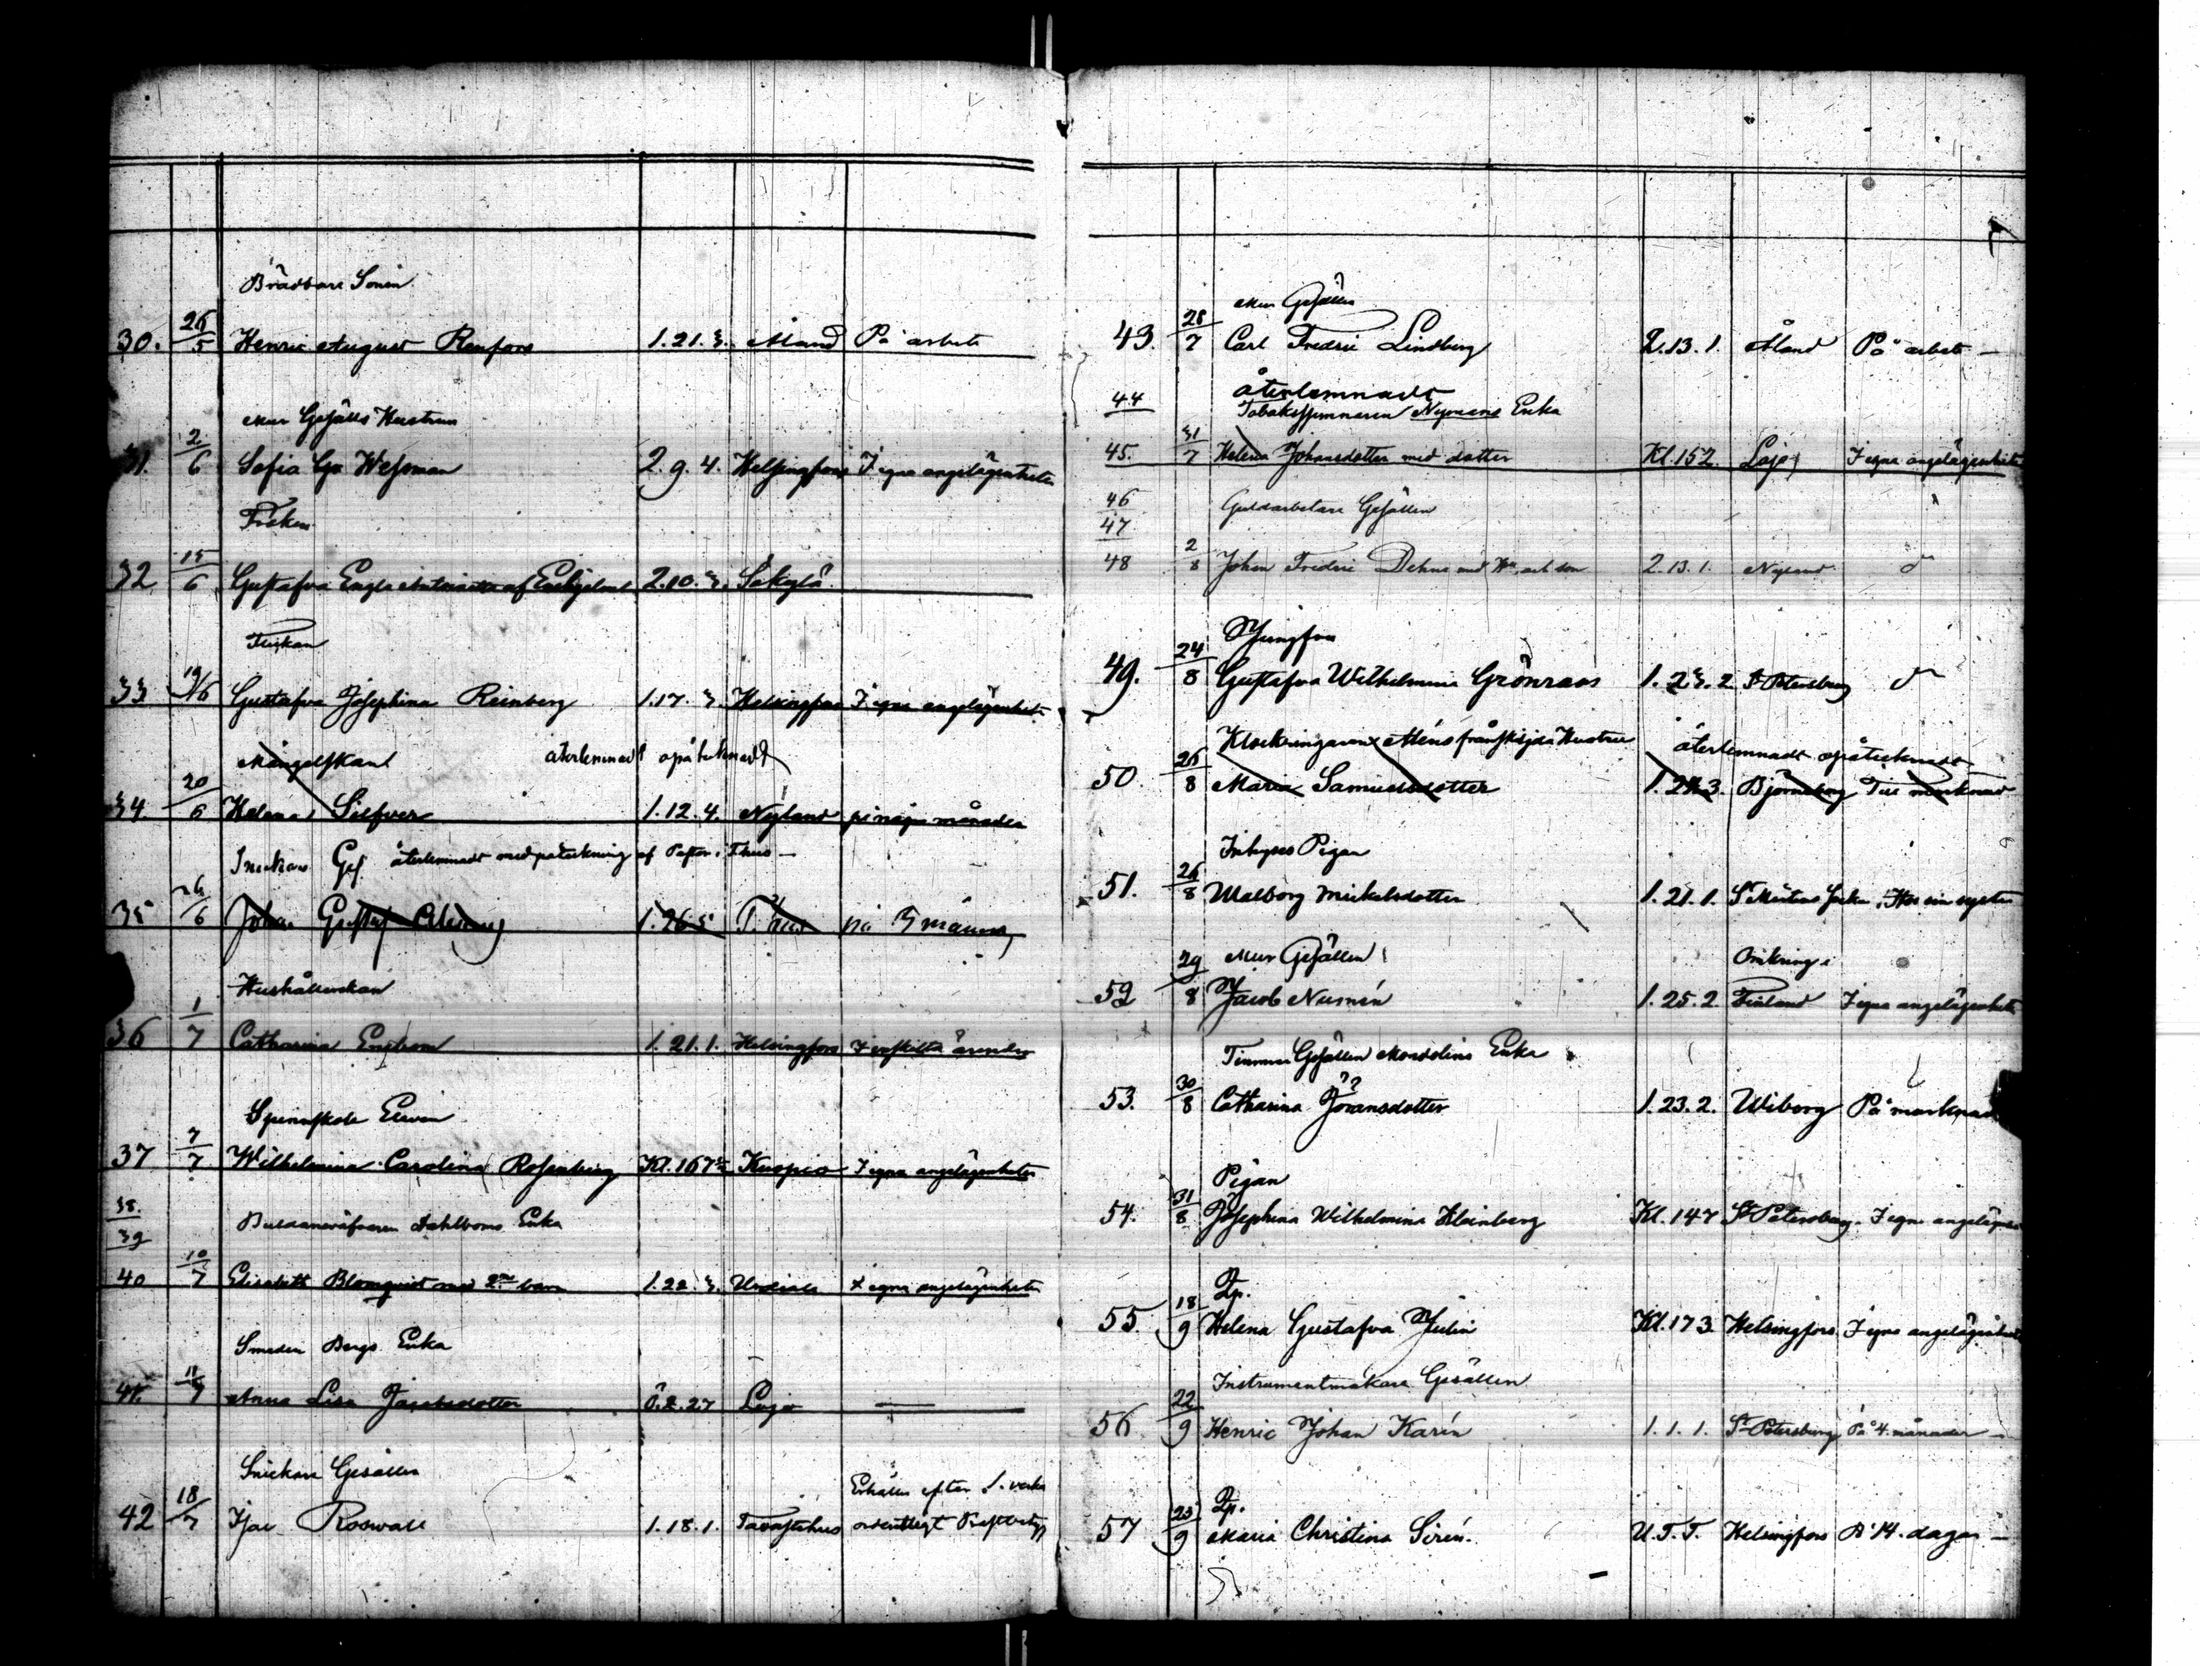 Brädbare Sonen
30. 26/5 Henric August Renfors 1.21.3. Åland På arbete
Mur Gesälls Hustrun
31. 2/6 Sofia Gu. Wessman 2.9.4. Helsingfors I egna angelägenheter
Fröken
32 15/6 Gustafva Engla Antoinetta af Enehjelm 2.10.3. Säkylä
Flickan
33 19/6 Gustafva Josephina Reinberg 1.17.3. Helsingfors I egna angelägenheter
Månglerskan återlemnadt opåtecknadt
34. 20/6 Helena Silfver 1.12.4. Nyland på några månader
Snickare Ges. återlemnadt med påteckning af Pastor i T.hus
35 26/6 Johan Gustaf 1.26.5 T. hus på 3 månader
Hushållerskan
36 1/7 Catharina Enström 1.21.1. Helsingfors I enskilta ärender
Spinnskole Eleven
37 7/7 Wilhelmina Carolina Rosenberg Kl.167 Kuopio I egna angelägenheter
38.
39 Dahlboms Enka
40 10/7 Elisabeth Blomqvist med 2ne barn 1.22.3. Urdiala I egna angelägenheter
Smeden Bergs Enka
41. 11/7 Anna Lisa Jacobsdotter Ö.2.27 Lojo —
Snickare Gesällen
Erhålles efter 1. vecka
42 18/7 Isac Roswall 1.18.1. Tavastehus ordentligt Prestbetyg
Mur Gesällen
43. 28/7 Carl Fredric Lindberg 2.13.1. Åland På arbete —
44 återlemnadt
Tobaksspinnaren Nymans Enka
45. 31/7 Helena Johansdotter med dotter Kl.152 Lojo I egna angelägenheter
46 Guldarbetare Gesällen
47
48 2/8 Johan Fredric Dehn med Hu. och son 2.13.1. Nyland d
Jungfru
49. 24/8 Gustafva Wilhelmina Grönroos 1.23.2 St Petersburg d
Klockringaren Aléns frånskiljda Hustru återlemnadt opåtecknadt
50. 26/8 Maria Samuelsdotter 1.24.3. Björneborg Till marknad
Inhyses Pigan
51. 26/8 Walborg Mickelsdotter 1.21.1. St Mårtens Socken Hos sin syster
Mur Gesällen Omkring i
52 29/8 Jacob Numén 1.25.2. Finland I egna angelägenheter
Timmer Gesällen Mordolins Enka
53. 30/8 Catharina Göransdotter 1.23.2. Wiborg På marknad
Pigan
54. 31/8 Josephina Wilhelmina Kleinberg Kl.147 St Petersburg I egna angelägenh
Dp.
55. 18/9 Helena Gustafva Julin Kl.173 Helsingfors I egna angelägenheter
Instrumentmakare Gesällen
56 22/9 Henric Johan Karén 1.1.1. St Petersburg På 4 månader —
Dp.
57 25/9 Maria Christina Sirén. U.T.T. Helsingfors På 14. dagar —